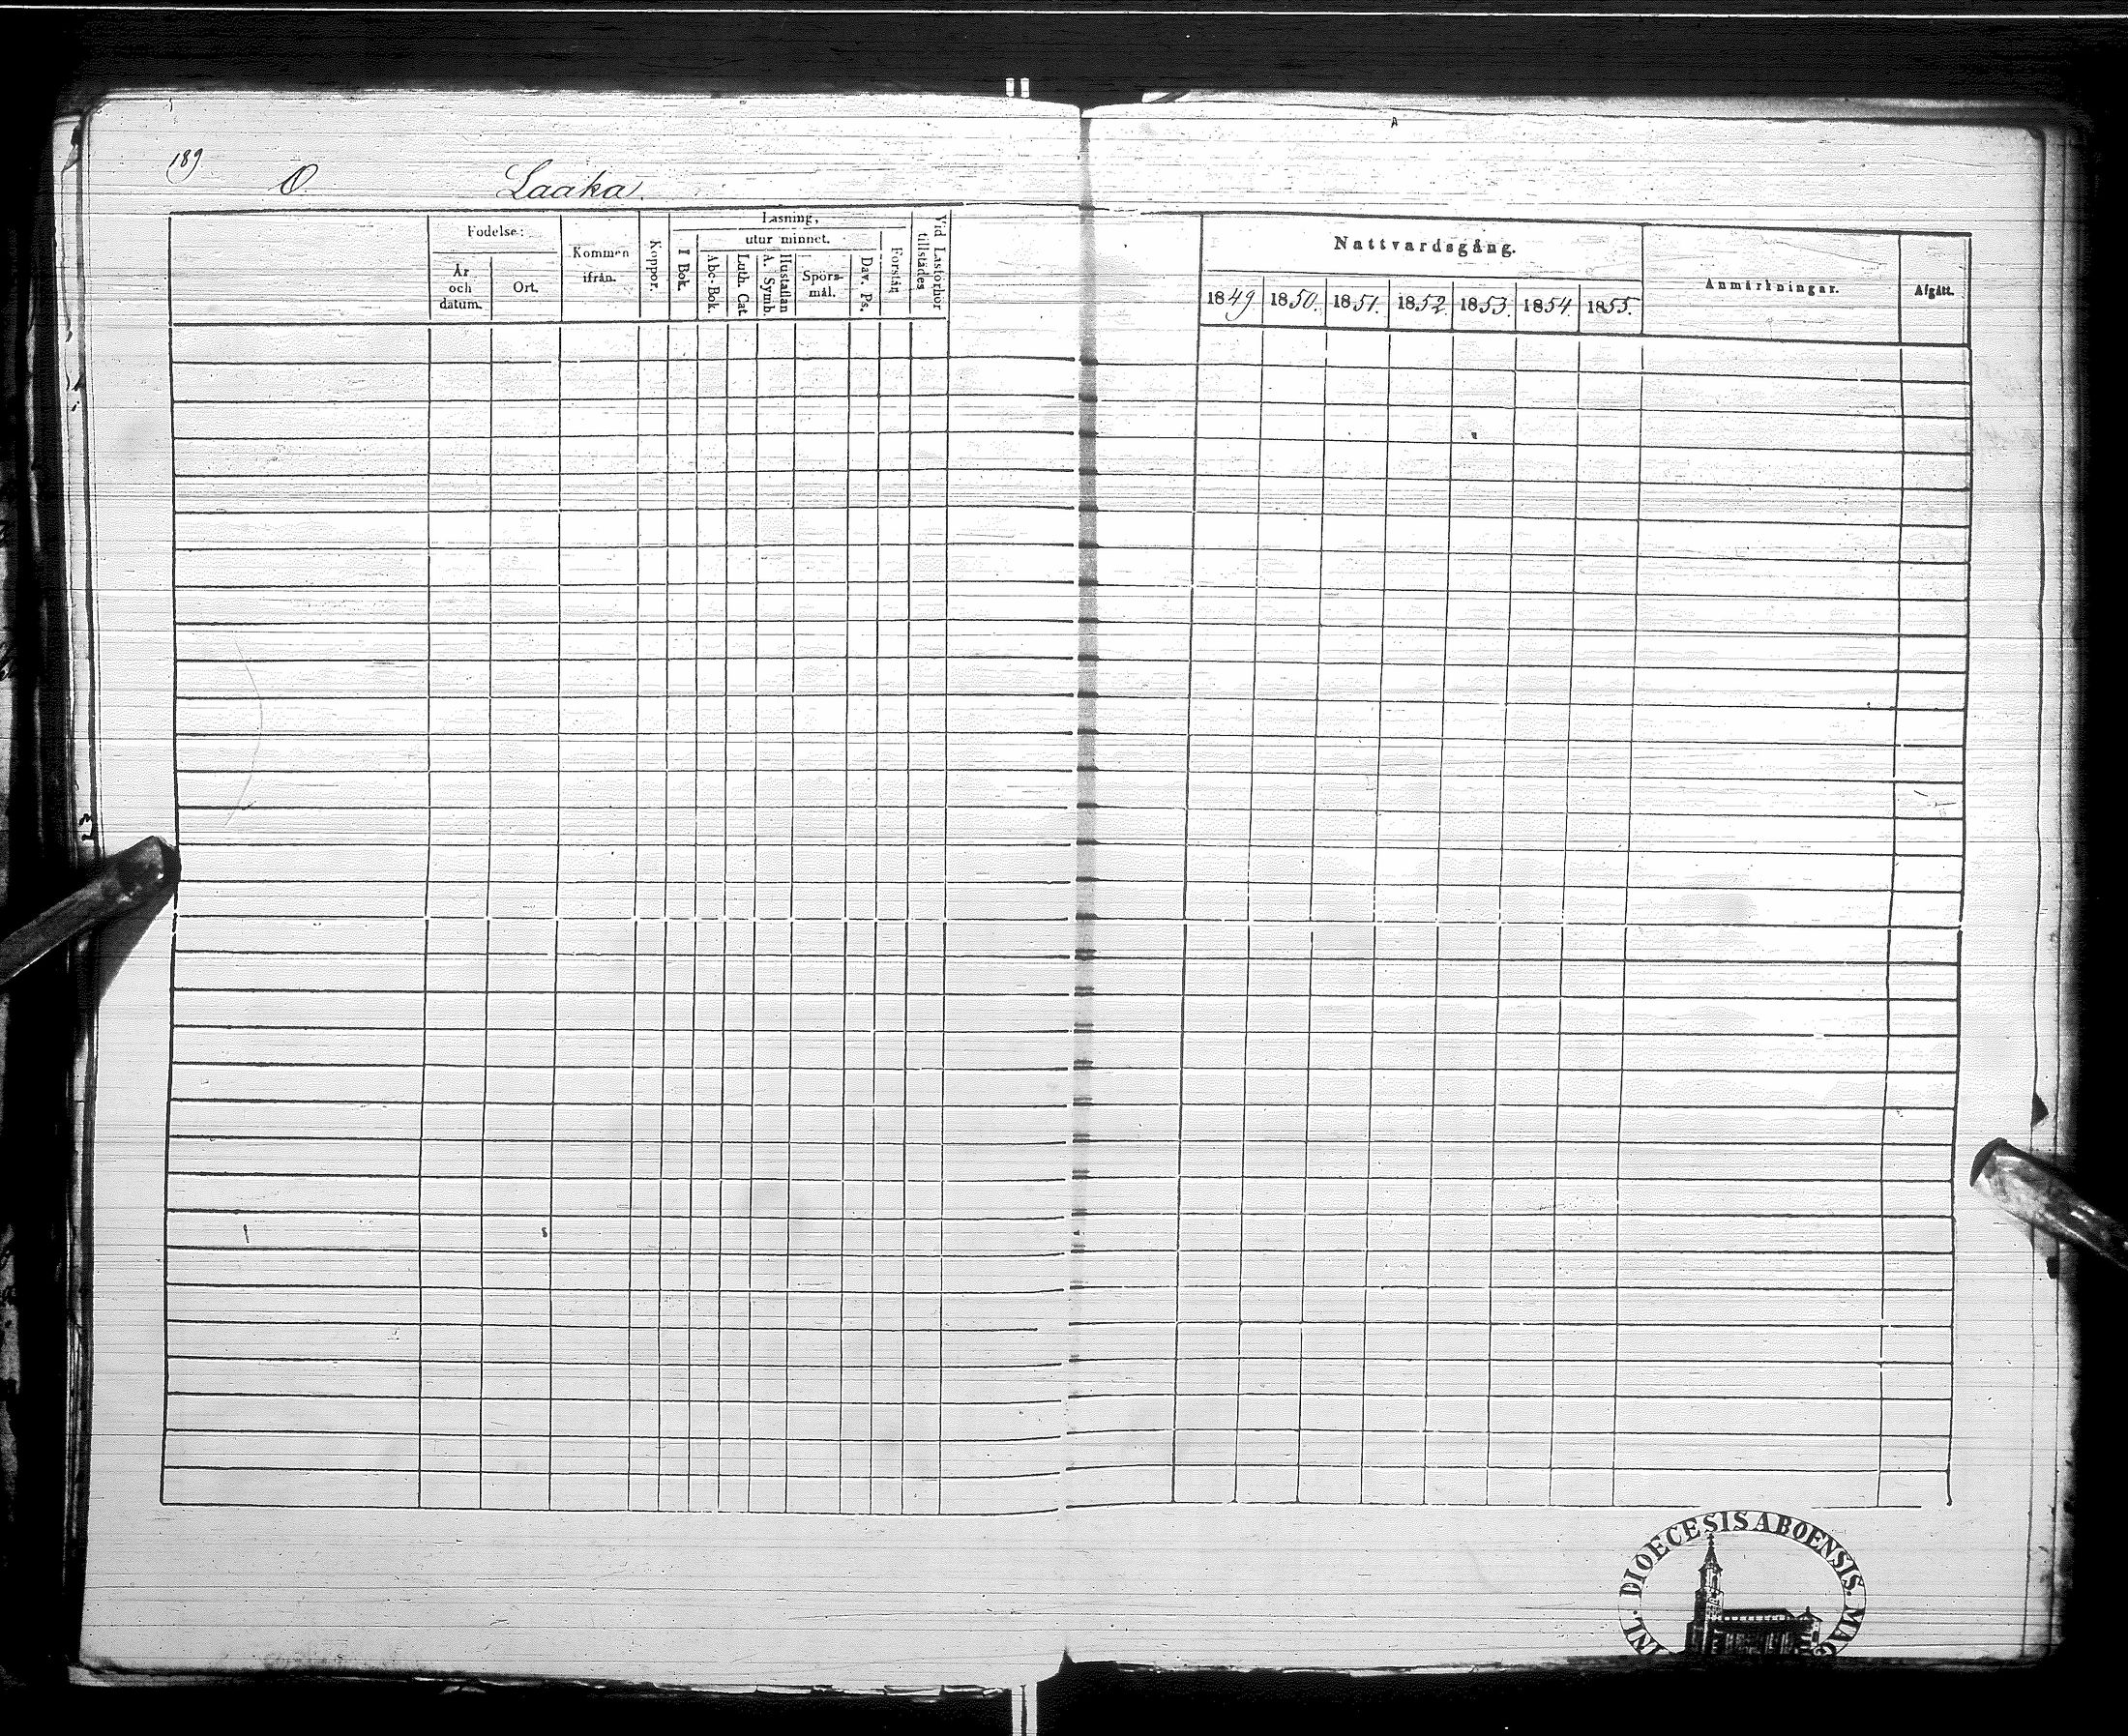 189
O Laaka.
Födelse:
År och datum.
Ort.
Kommen ifrån.
Koppor.
Läsning,
I Bok.
utur minnet.
Abc-Bok.
Luth. Cat
Hustaflan A. Symb.
Spörs-mål.
Dav. Ps.
Förstår
Vid Läsförhör tillstädes
Nattvardsgång.
1849. 1850. 1851. 1852. 1853. 1854. 1855.
Anmärkningar.
Afgått.
INL. DIOECESIS ABOENSIS. MAG